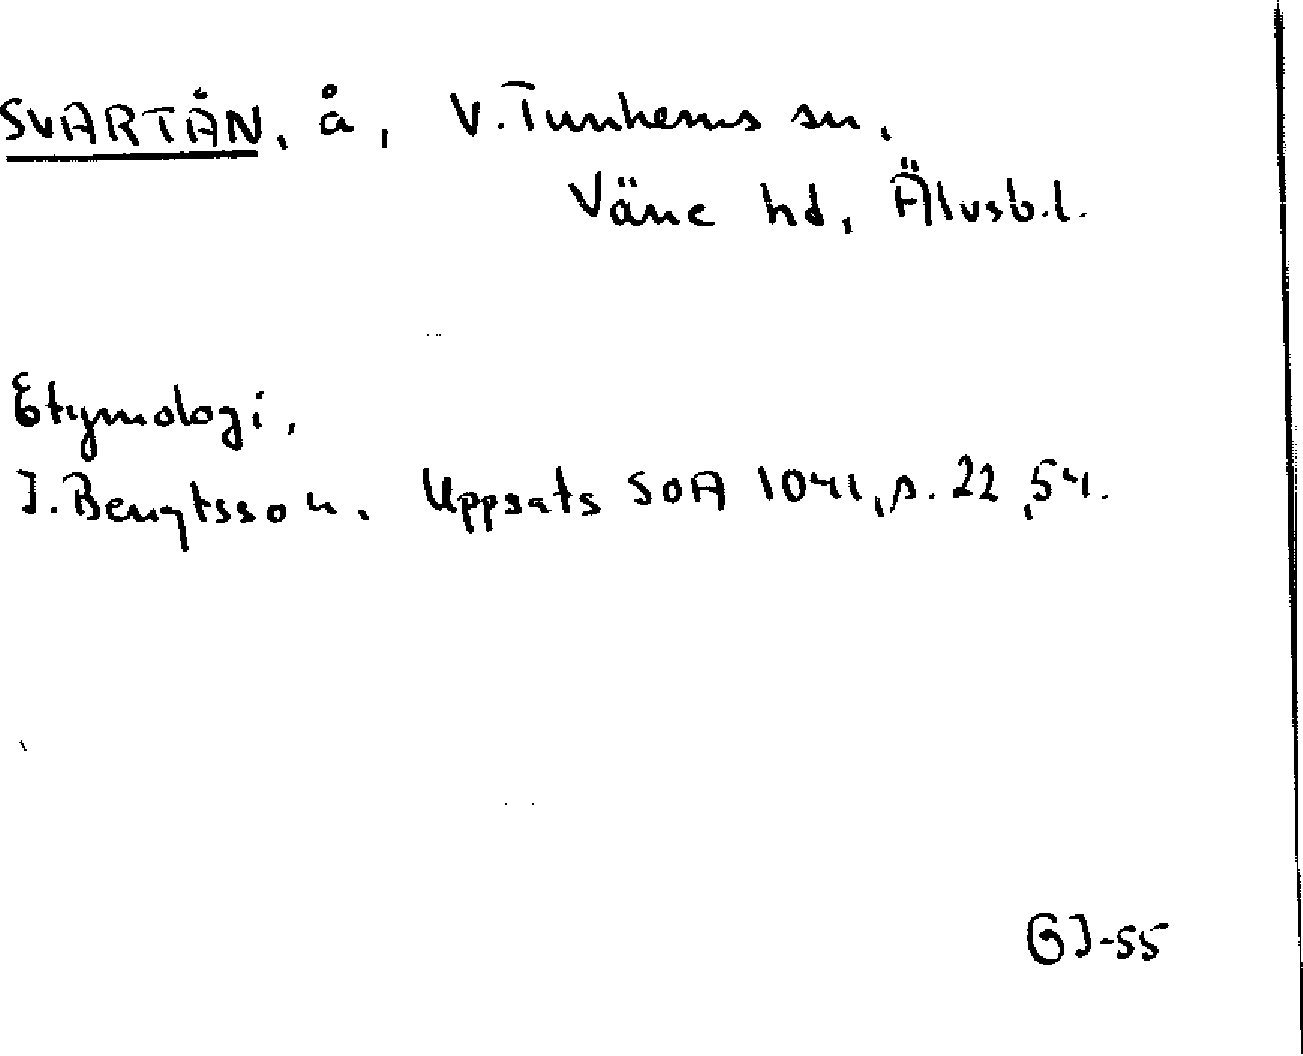 SVARTÅN, å, V. Tunhems sn,
Väne hd, Älvsb.l.
Etymologi,
J. Bengtsson. Uppsats SOA 1041, s. 22, 54.
GJ-55